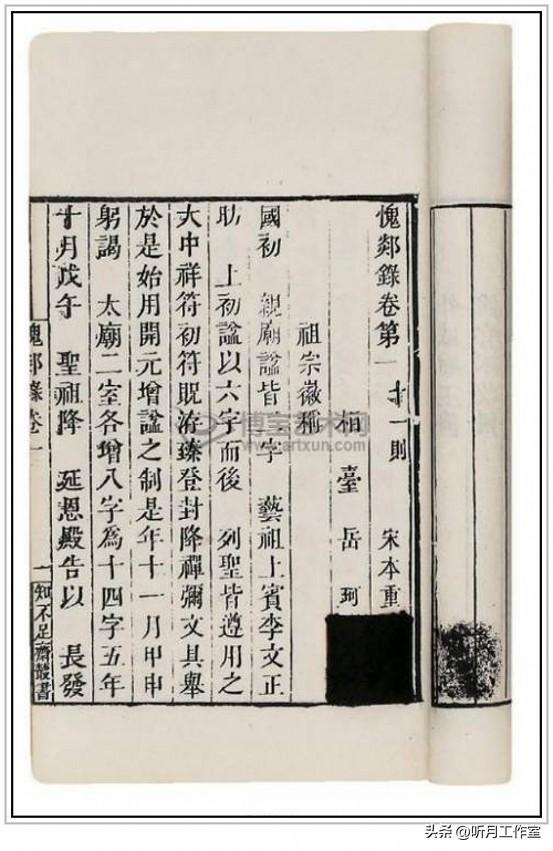 愧郯錄卷第一 十一則 宋本重
相臺岳珂
祖宗徽稱
國初 親廟諡皆一字 藝祖上賓李文正
昉 上初諡以六字而後 列聖皆遵用之
大中祥符初符既洊臻登封降禪彌文具舉
於是始用開元增諡之制是年十一月甲申
躬謁 太廟二室各增八字為十四字五年
十月戊午 聖祖降 延恩殿告以 長發
愧郯錄卷一 一 知不足齋叢書
博宝艺术网
www.artxun.com
头条 @听月工作室